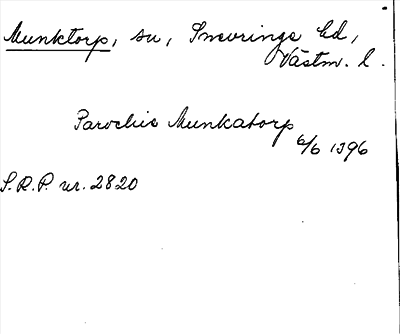 Munktorp, sn, Snevringe hd,
Västm. l.
Parochie Munkatorp
6/6 1396
S.R.P. nr. 2820